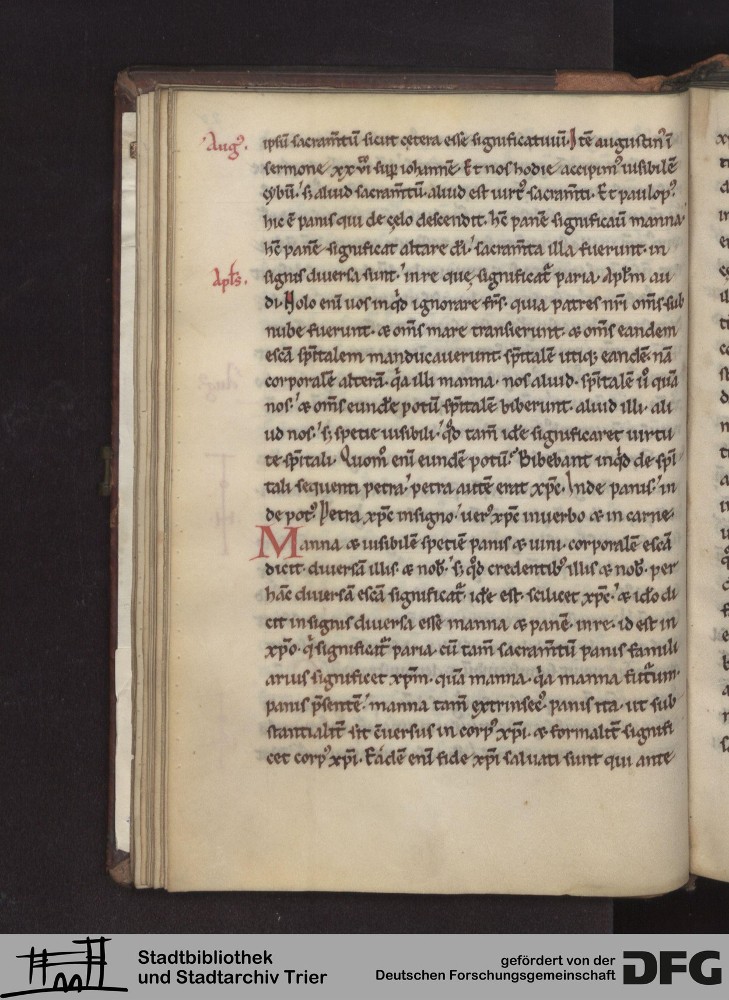 Aug᷒.
ipsū sacram̄tū sicut cętera esse significatiuū. Itē augustin᷒ ī
sermone xxvi sup iohannē. Et nos hodie accipim᷒ uisibilē
cybū. s; aliud sacram̄tū. aliud est uirt᷒ sacram̄ti. Et paulo p᷒.
hic ē panis qui de cęlo descendit. hc̄ panē significauit manna.
hc̄ panē significat altare dī. sacram̄ta illa fuerunt. in
Apl̄s.
signis diuersa sunt. in re que significat̄ paria. Apl̄m au
di. Nolo enī uos inqͥd ignorare fr̄s. quia patres nr̄i om̄s sub
nube fuerunt. & om̄s mare transierunt. & om̄s eandem
escā sp̄italem manducauerunt. sp̄italē utiq; eandē. nā
corporalē alterā. qͥa illi manna. nos aliud. sp̄italē ū quā
nos. & om̄s eundē potū sp̄italē biberunt. aliud illi. ali
ud nos. s; spetie uisibili. qͦd tam̄ idē significaret uirtu
te sp̄itali. Quom̊ enī eundē potū. Bibebant inqͥd de sp̄i
tali sequenti petra. petra autē erat xp̄c. Inde panis. in
de pot᷒. Petra xp̄c in signo. uer᷒ xp̄c in uerbo & in carne.
Manna & uisibilē spetiē panis & uini. corporalē escā
dicit. diuersā illis. & nob̄. s; qͦd credentib᷒ illis & nob̄. per
hāc diuersā escā significat̄. idē est. scilicet xp̄c. & idō di
cit in signis diuersa esse manna & panē. in re. id est in
xp̄o. qͥ significat̄ paria. cū tam̄ sacram̄tū panis famili
arius significet xp̄m. quā manna. qͥa manna futurum.
panis p̄sentē. manna tam̄ extrinsec᷒. panis ita. ut sub
stantialit̄ sit c̄uersus in corp᷒ xp̄i. & formalit̄ signifi
cet corp᷒ xp̄i. Eadē enī fide xp̄i saluati sunt qui ante
Stadtbibliothek
und Stadtarchiv Trier
gefördert von der
Deutschen Forschungsgemeinschaft
DFG